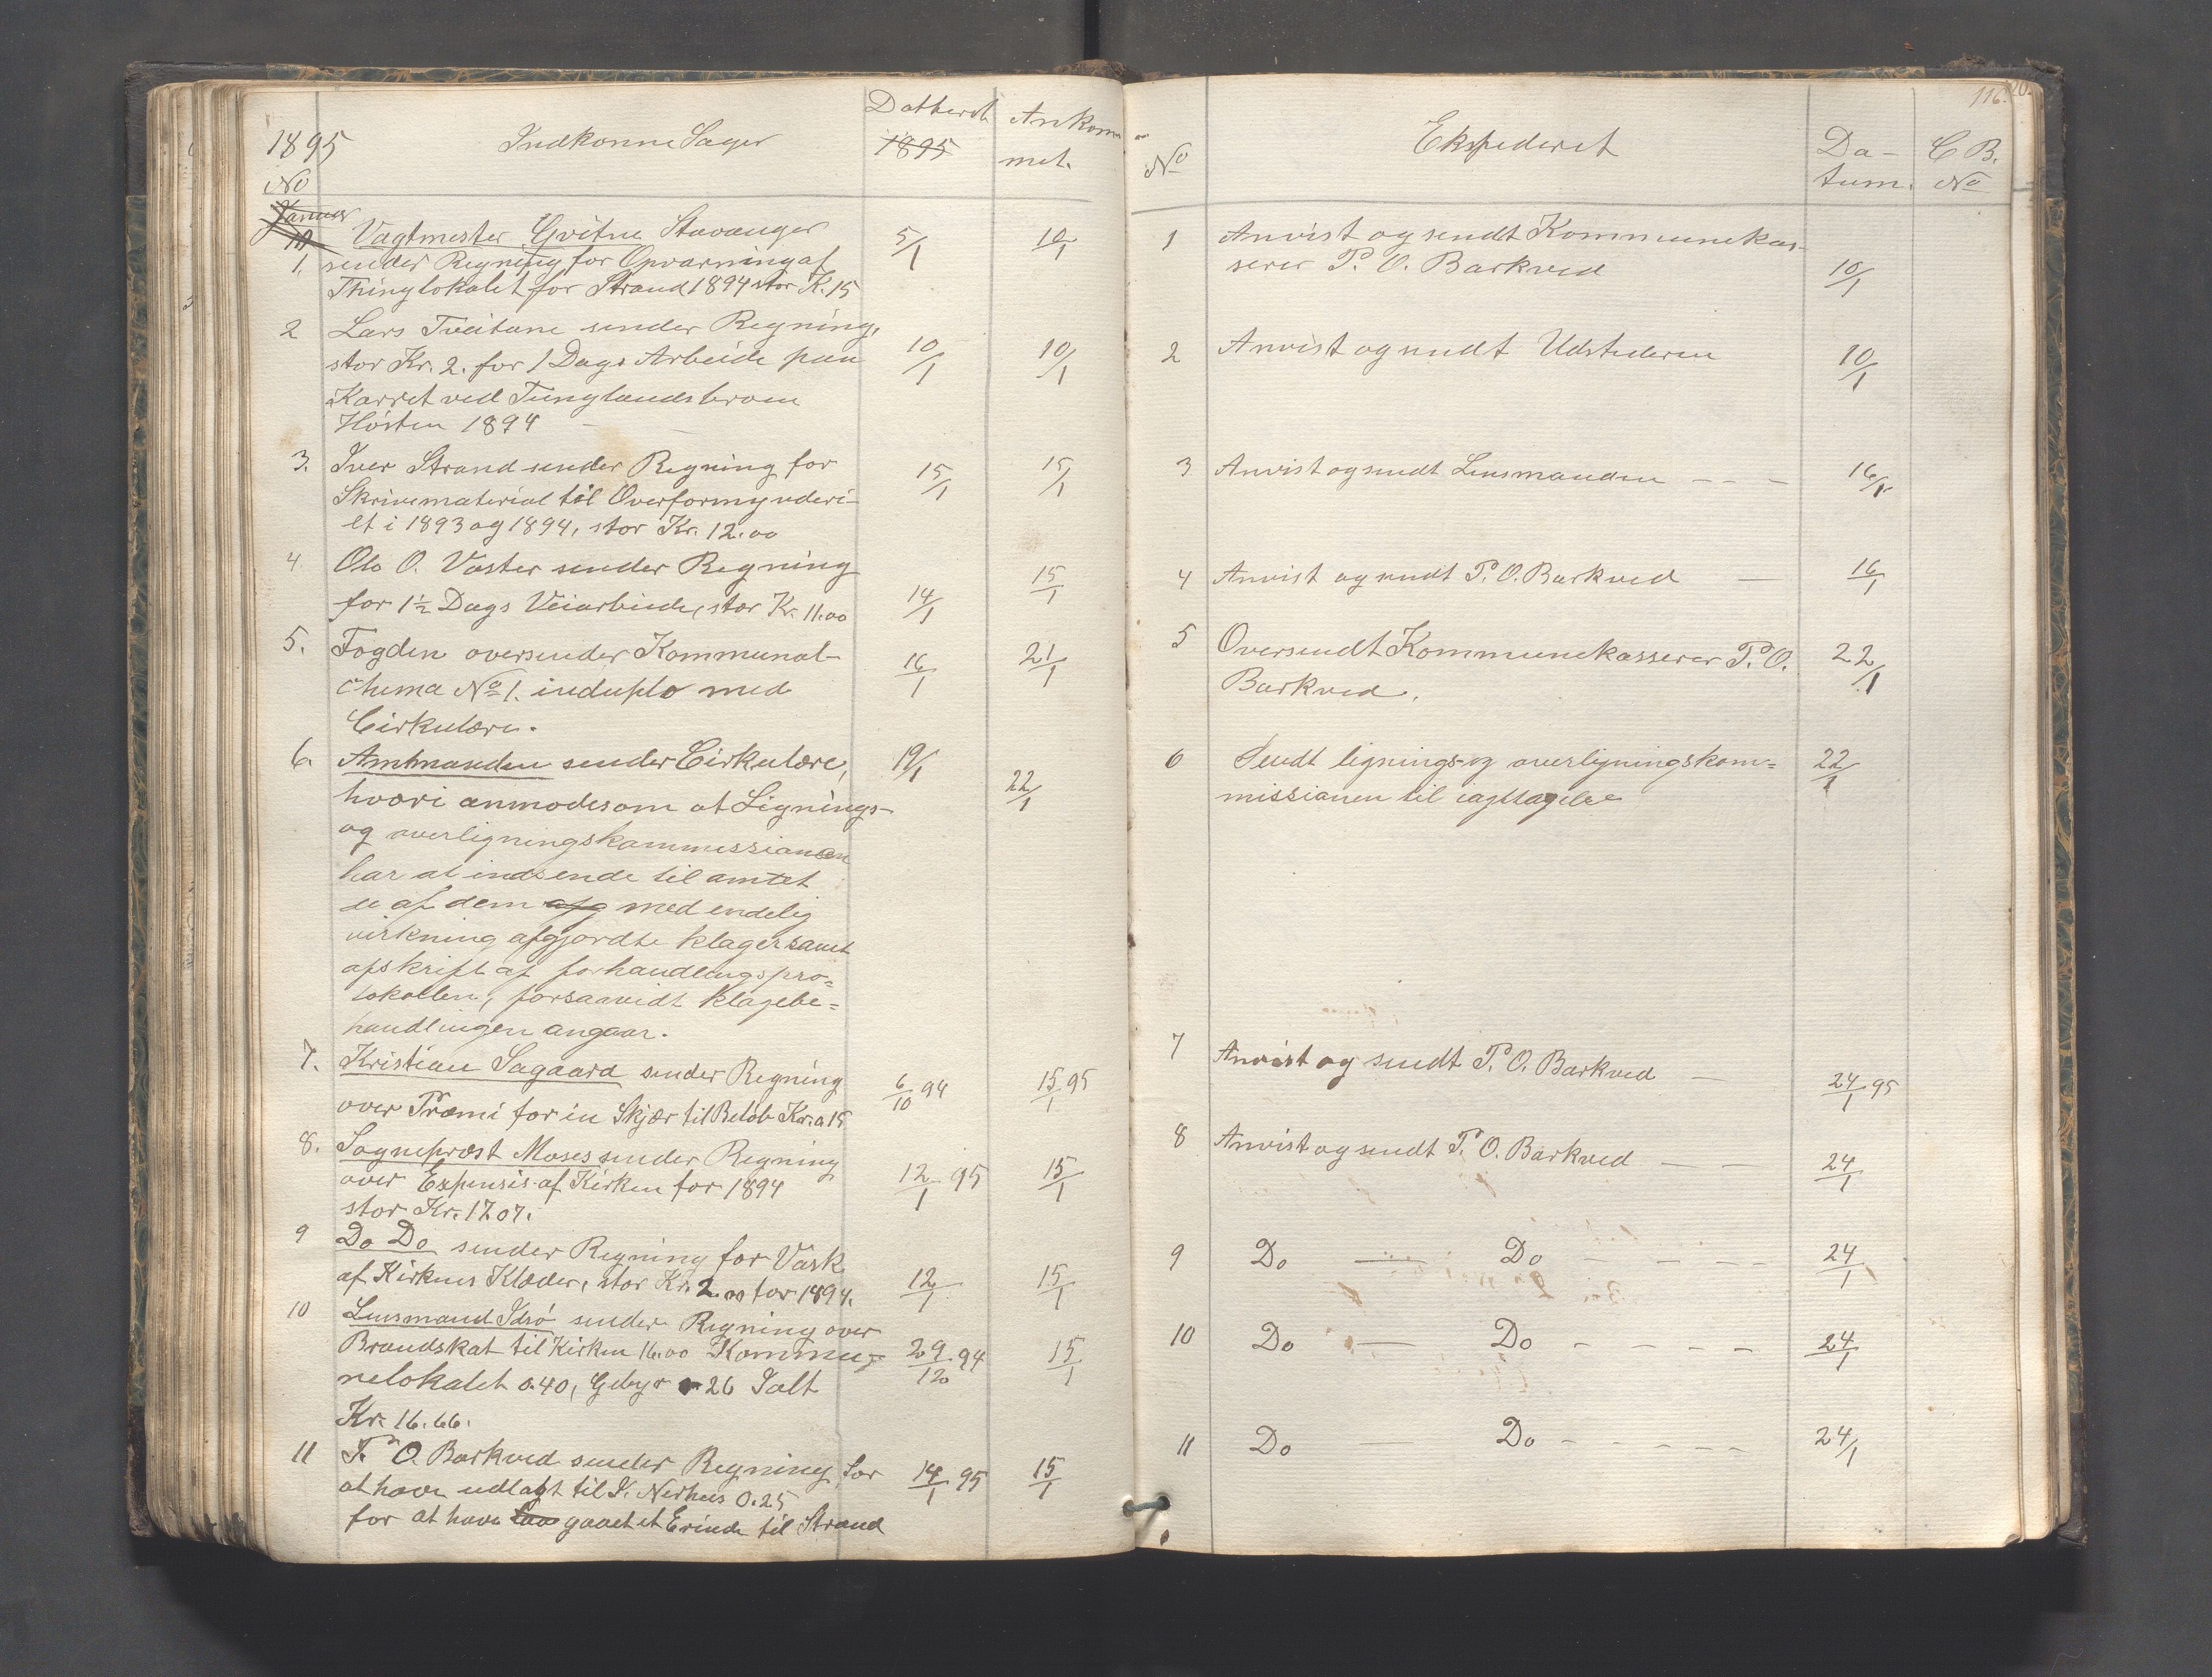 1895
No
Indkomne Sager
Datteret
1895
Ankom
met.
Januar
10
1. Vagtmester Gvitne Stavanger 5/1 10/1
sender Regning for Opvarmning af
Thinglokalet for Strand 1894 stor K. 15
2 Lars Tveitane sender Regning,
stor Kr. 2. for 1 Dags Arbeide paa 10/1 10/1
Karret ved Tunglandsbroen
Høsten 1894
3. Iver Strand sender Regning for 15/1 15/1
Skrivematerial til Overformynderi-
et i 1893 og 1894, stor Kr. 12.00
4. Ole O. Vaster sender Regning 15/1
for 1 1/2 Dags Veiarbeide, stor Kr. 11.00 14/1
5. Fogden oversender Kommunal- 16/1 21/1
chema No 1. induplo med
Cirkulære.
6. Amtmanden sender Cirkulære, 19/1
hvori anmodes om at Lignings- 22/1
og overligningskommissionen
har at indsende til amtet
de af dem afg med endelig
virkning afgjordte klager samt
afskrift af forhandlingspro=
tokollen, forsaavidt klagebe=
handlingen angaar.
7. Kristian Sagaard sender Regning 6/10 94 15/1 95
over Præmi for en Skjær til Beløb Kr. 0.15
8. Sogneprest Moses sender Regning
over Expensis af Kirken for 1894 12/1 95 15/1
stor Kr. 17.07.
9 Do Do sender Regning for Vask
af Kirkens Klæder, stor Kr. 2.00 for 1894. 12/1 15/1
10 Lensmand Idsø sender Regning over
Brandskat til Kirken 16.00 Kommu- 29/12 94 15/1
nelokalet 0.40, Gebyr 26 Ialt
Kr. 16.66.
11 P. O. Barkved sender Regning for 14/1 95 15/1
at have udlagt til I. Nerhus 0.25
for at have gaaet et Erinde til Strand
116.
No
Ekspederet
Da-
tum.
C B.
No
1 Anvist og sendt Kommunekas-
serer P. O. Barkved 10/1
2 Anvist og sendt Udstederen 10/1
3 Anvist og sendt Lensmanden - - - 16/1
4 Anvist og sendt P. O. Barkved — 16/1
5 Oversendt Kommunekasserer P. O. 22/1
Barkved.
6 Sendt lignings- og overligningskom= 22/1
missionen til iagttagelse
7 Anvist og sendt P. O. Barkved — 24/1 95
8 Anvist og sendt P. O. Barkved — — 24/1
9 Do — Do - - - - 24/1
10 Do — Do - - - - - 24/1
11 Do — Do - - - - - - 24/1